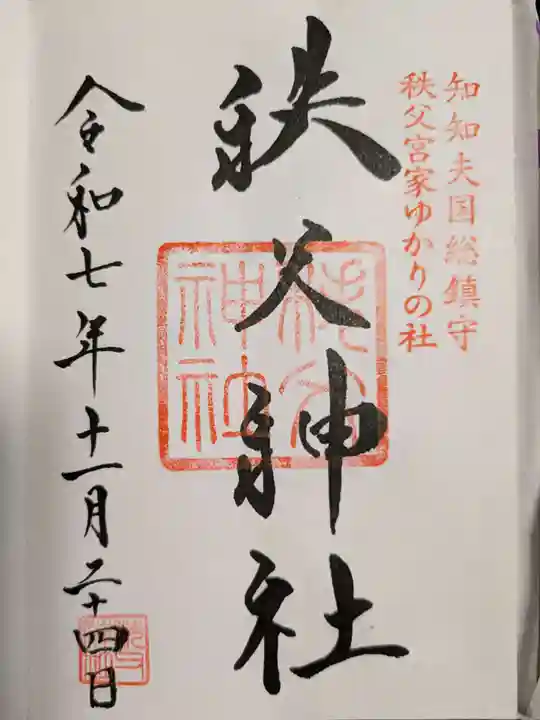 知知夫国総鎮守
秩父宮家ゆかりの社
秩父神社
秩父神社
令和七年十一月二十四日